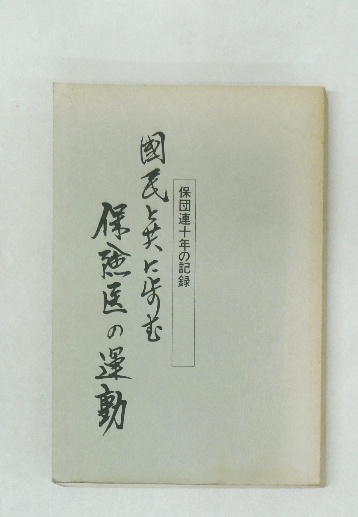 保団連十年の記録
國民と共に歩む
保險医の運動